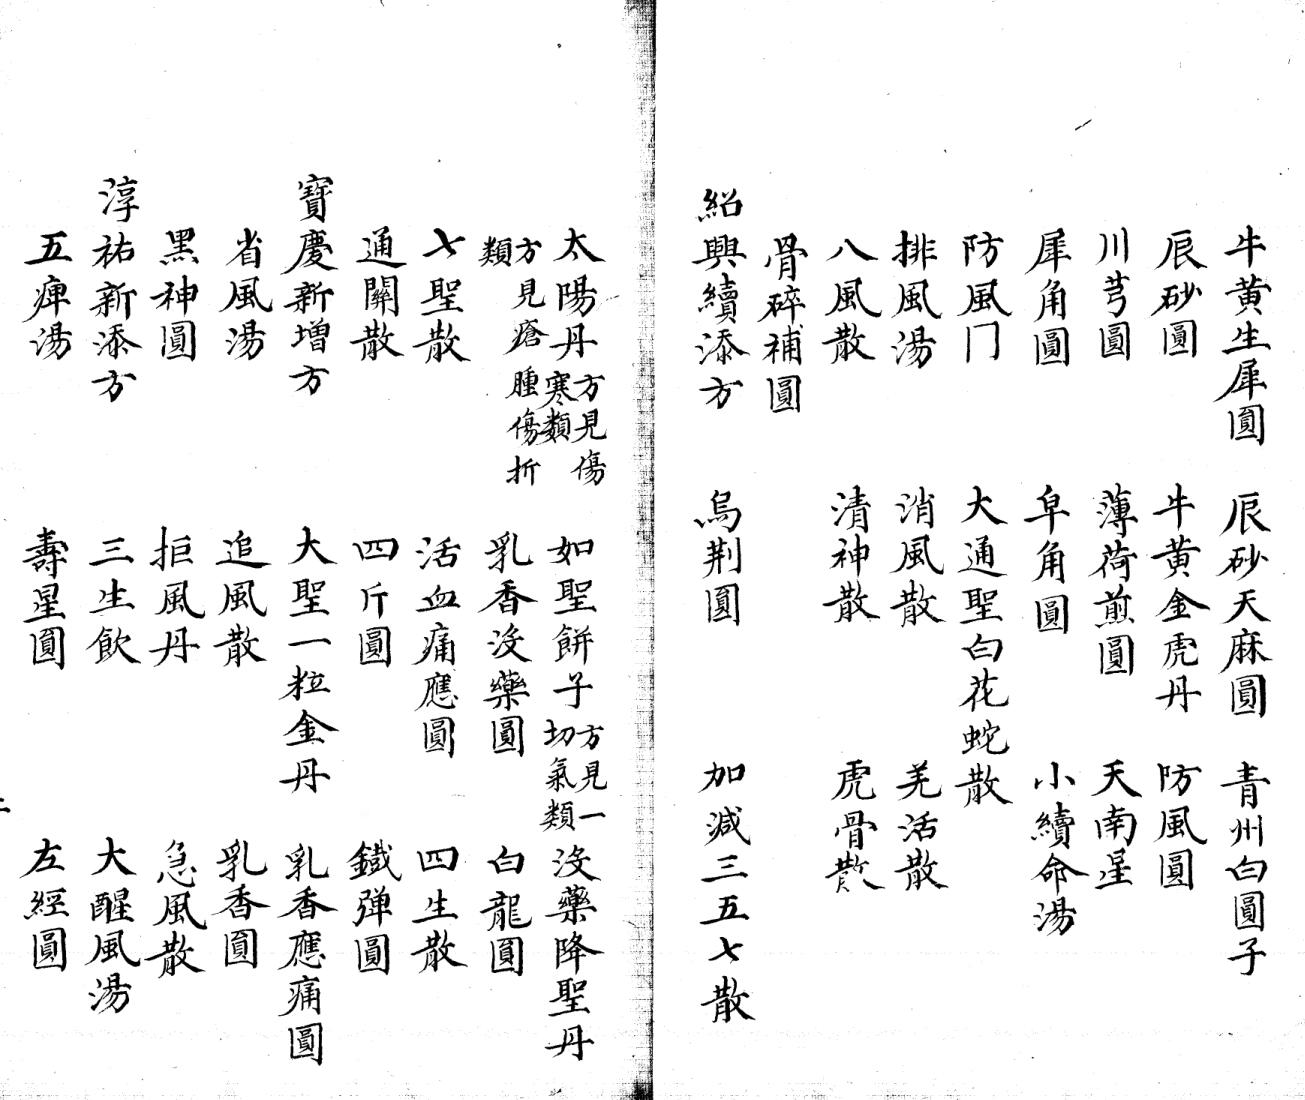 牛黄生犀圓 辰砂天麻圓 青州白圓子
辰砂圓 牛黄金虎丹 防風圓
川芎圓 薄荷煎圓 天南星
犀角圓 皁角圓 小續命湯
防風门 大通聖白花蛇散
排風湯 消風散 羌活散
八風散 清神散 虎骨散
骨碎補圓
紹興續添方 烏荆圓 加減三五七散
太陽丹方見傷寒類 如聖餅子方見一切氣類 没藥降聖丹
方見瘡腫傷折類 乳香没藥圓 白龍圓
七聖散 活血痛應圓 四生散
通關散 四斤圓 鐵弹圓
寶慶新增方 大聖一粒金丹 乳香應痛圓
省風湯 追風散 乳香圓
黑神圓 拒風丹 急風散
淳祐新添方 三生飲 大醒風湯
五痺湯 壽星圓 左經圓